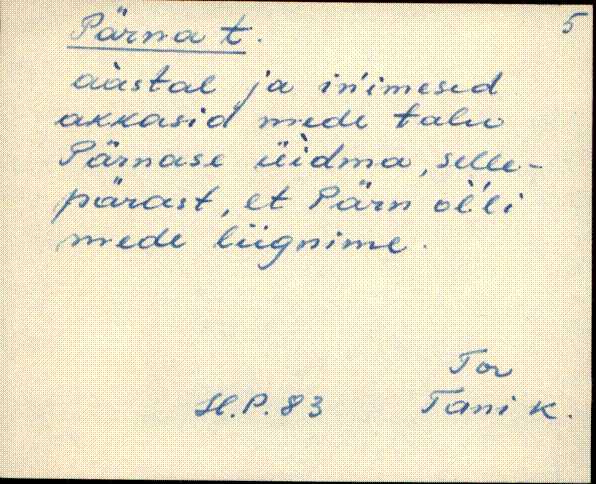 Pärna t. 5
aàstal ja in'imesed
akkasid mede talu
Pärnase üìdma, selle-
pärast, et Pärn ol'li
mede liignime.
Tor
H.P. 83 Tani k.